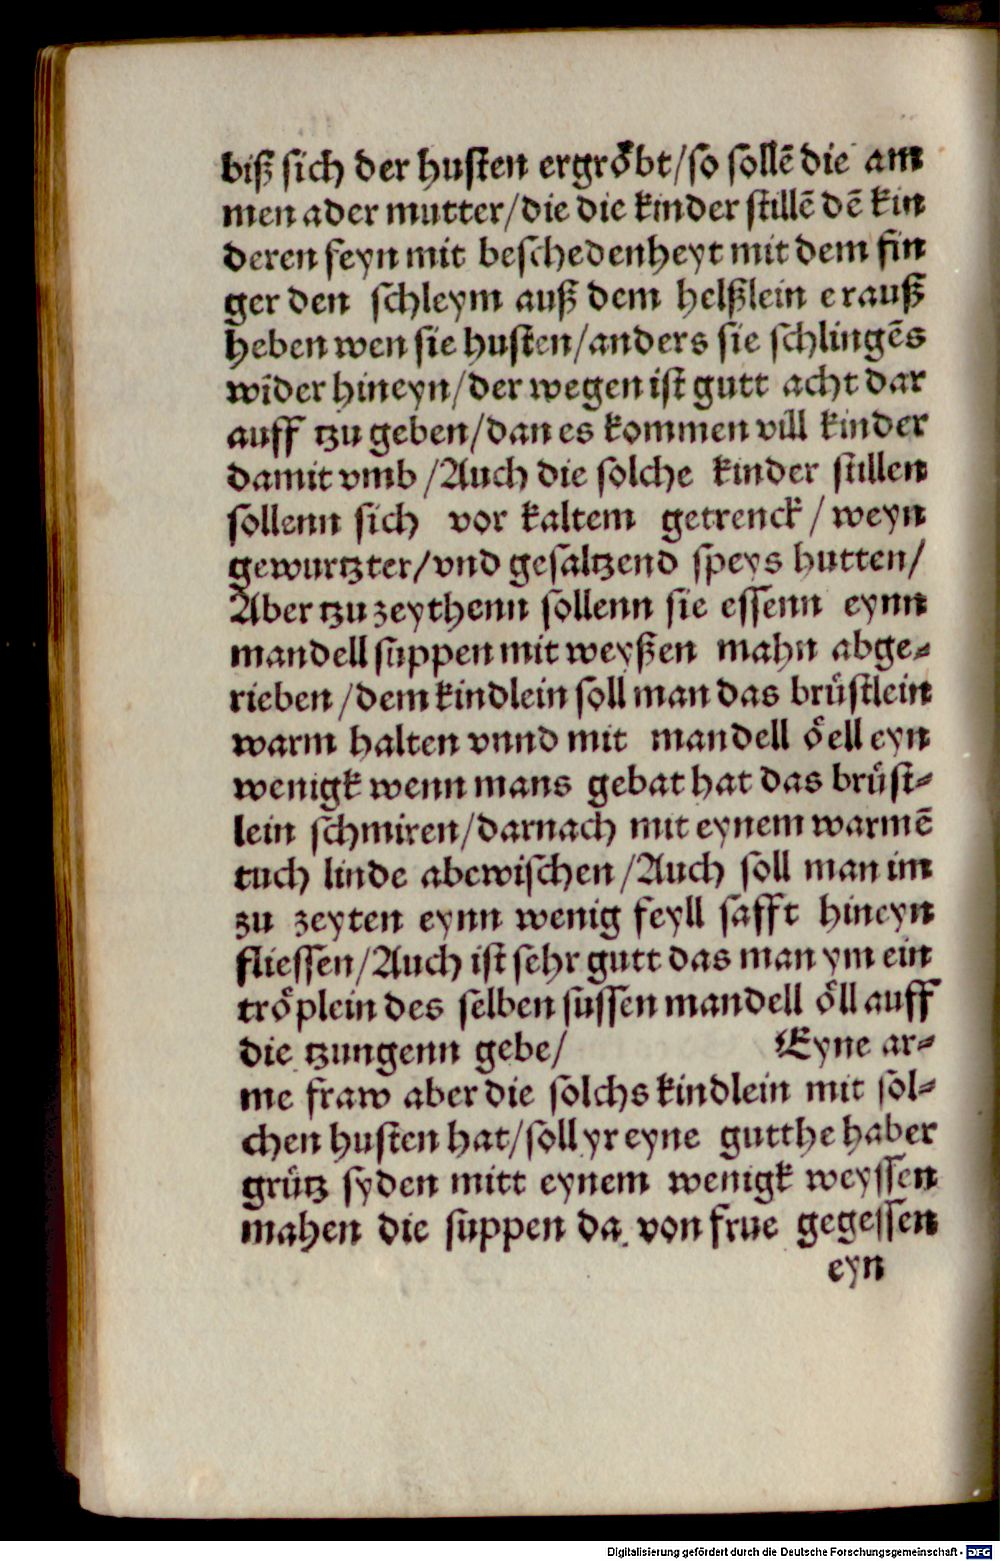 biß sich der husten ergröbt/so sollē die am
men ader mutter/die die kinder stillē dē kin
deren feyn mit beschedenheyt mit dem fin
ger den schleym auß dem helßlein erauß
heben wen sie husten/anders sie schlingēs
wīder hineyn/der wegen ist gutt acht dar
auff tzu geben/dan es kommen vill kinder
damit vmb/Auch die solche kinder stillen
sollenn sich vor kaltem getrenck/weyn
gewurtzter/vnd gesaltzend speys hutten/
Aber tzu zeythenn sollenn sie essenn eynn
mandell suppen mit weyßen mahn abge-
rieben/dem kindlein soll man das brüstlein
warm halten vnnd mit mandell öell eyn
wenigk wenn mans gebat hat das brüst-
lein schmiren/darnach mit eynem warmē
tuch linde abewischen/Auch soll man im
zu zeyten eynn wenig feyll safft hineyn
fliessen/Auch ist sehr gutt das man ym ein
tröplein des selben sussen mandell öll auff
die tzungenn gebe/ Eyne ar-
me fraw aber die solchs kindlein mit sol-
chen husten hat/soll yr eyne gutthe haber
grütz syden mitt eynem wenigk weyssen
mahen die suppen da von frue gegessen
eyn
Digitalisierung gefördert durch die Deutsche Forschungsgemeinschaft - DFG